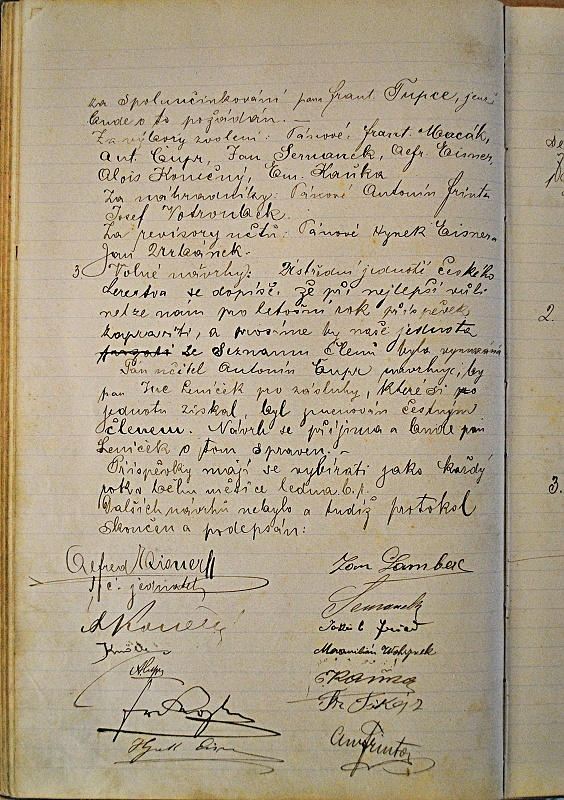 za spoluúčinkování pana Frant. Tupce, jenž
bude o to požádán. —
Za výbory zvoleni: Pánové: Frant. Macák,
Ant. Cupr, Jan Semanek, Alfr. Eisner,
Alois Konečný, Em. Kaňka
Za náhradníky: Pánové Antonín Frinta
Josef Votroubek.
Za revisory účtů: Pánové Hynek Eisner a
Jan Vrbánek.
3. Volné návrhy: Ústřední jednotě českého
se dopíše, že při nejlepší vůli
nelze nám pro letošní rok příspěvek
zapraviti, a prosíme by naše jednota
ze seznamu členů byla
Pan učitel Antonín Cupr navrhuje, by
pan Leniček pro zásluhy, které si
jednotu získal, byl jmenován čestným
členem. Návrh se přijímá a bude pan
Leniček o tom zpraven. —
Příspěvky mají se vybírati jako každý
rok během měsíce ledna b. r.
Dalších návrhů nebylo a tudíž protokol
skončen a podepsán:
Alfred Eisner
t. č. jednatel
Jan Lambec
Semanek
A Konečný
Jakub Fried
Maxmilian
A Cupr
Kaňka
Hynek Eisner
Ant Frinta
2.
3.